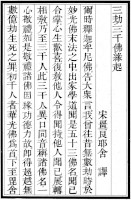 三劫三千佛緣起
宋畺良耶舍譯
爾時釋迦牟尼佛告大衆言我曾往昔無數劫時於
妙光佛末法之中出家學道聞是五十三佛名聞已
合掌心生歡喜復教他人令得聞持他人聞已展轉
相教乃至三千人此三千人異口同音稱諸佛名一
心敬禮如是敬禮諸佛因緣功德力故即得超越無
數億劫生死之罪初千人者華光佛爲首下至毘舍